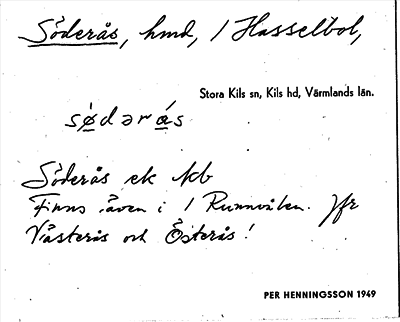 Söderås, hmd, 1 Hasselbol,
Stora Kils sn, Kils hd, Värmlands län.
sø̀dərás
Söderås ek Kb
Finns även i 1 Runnvålen. Jfr
Västerås och Österås!
PER HENNINGSSON 1949